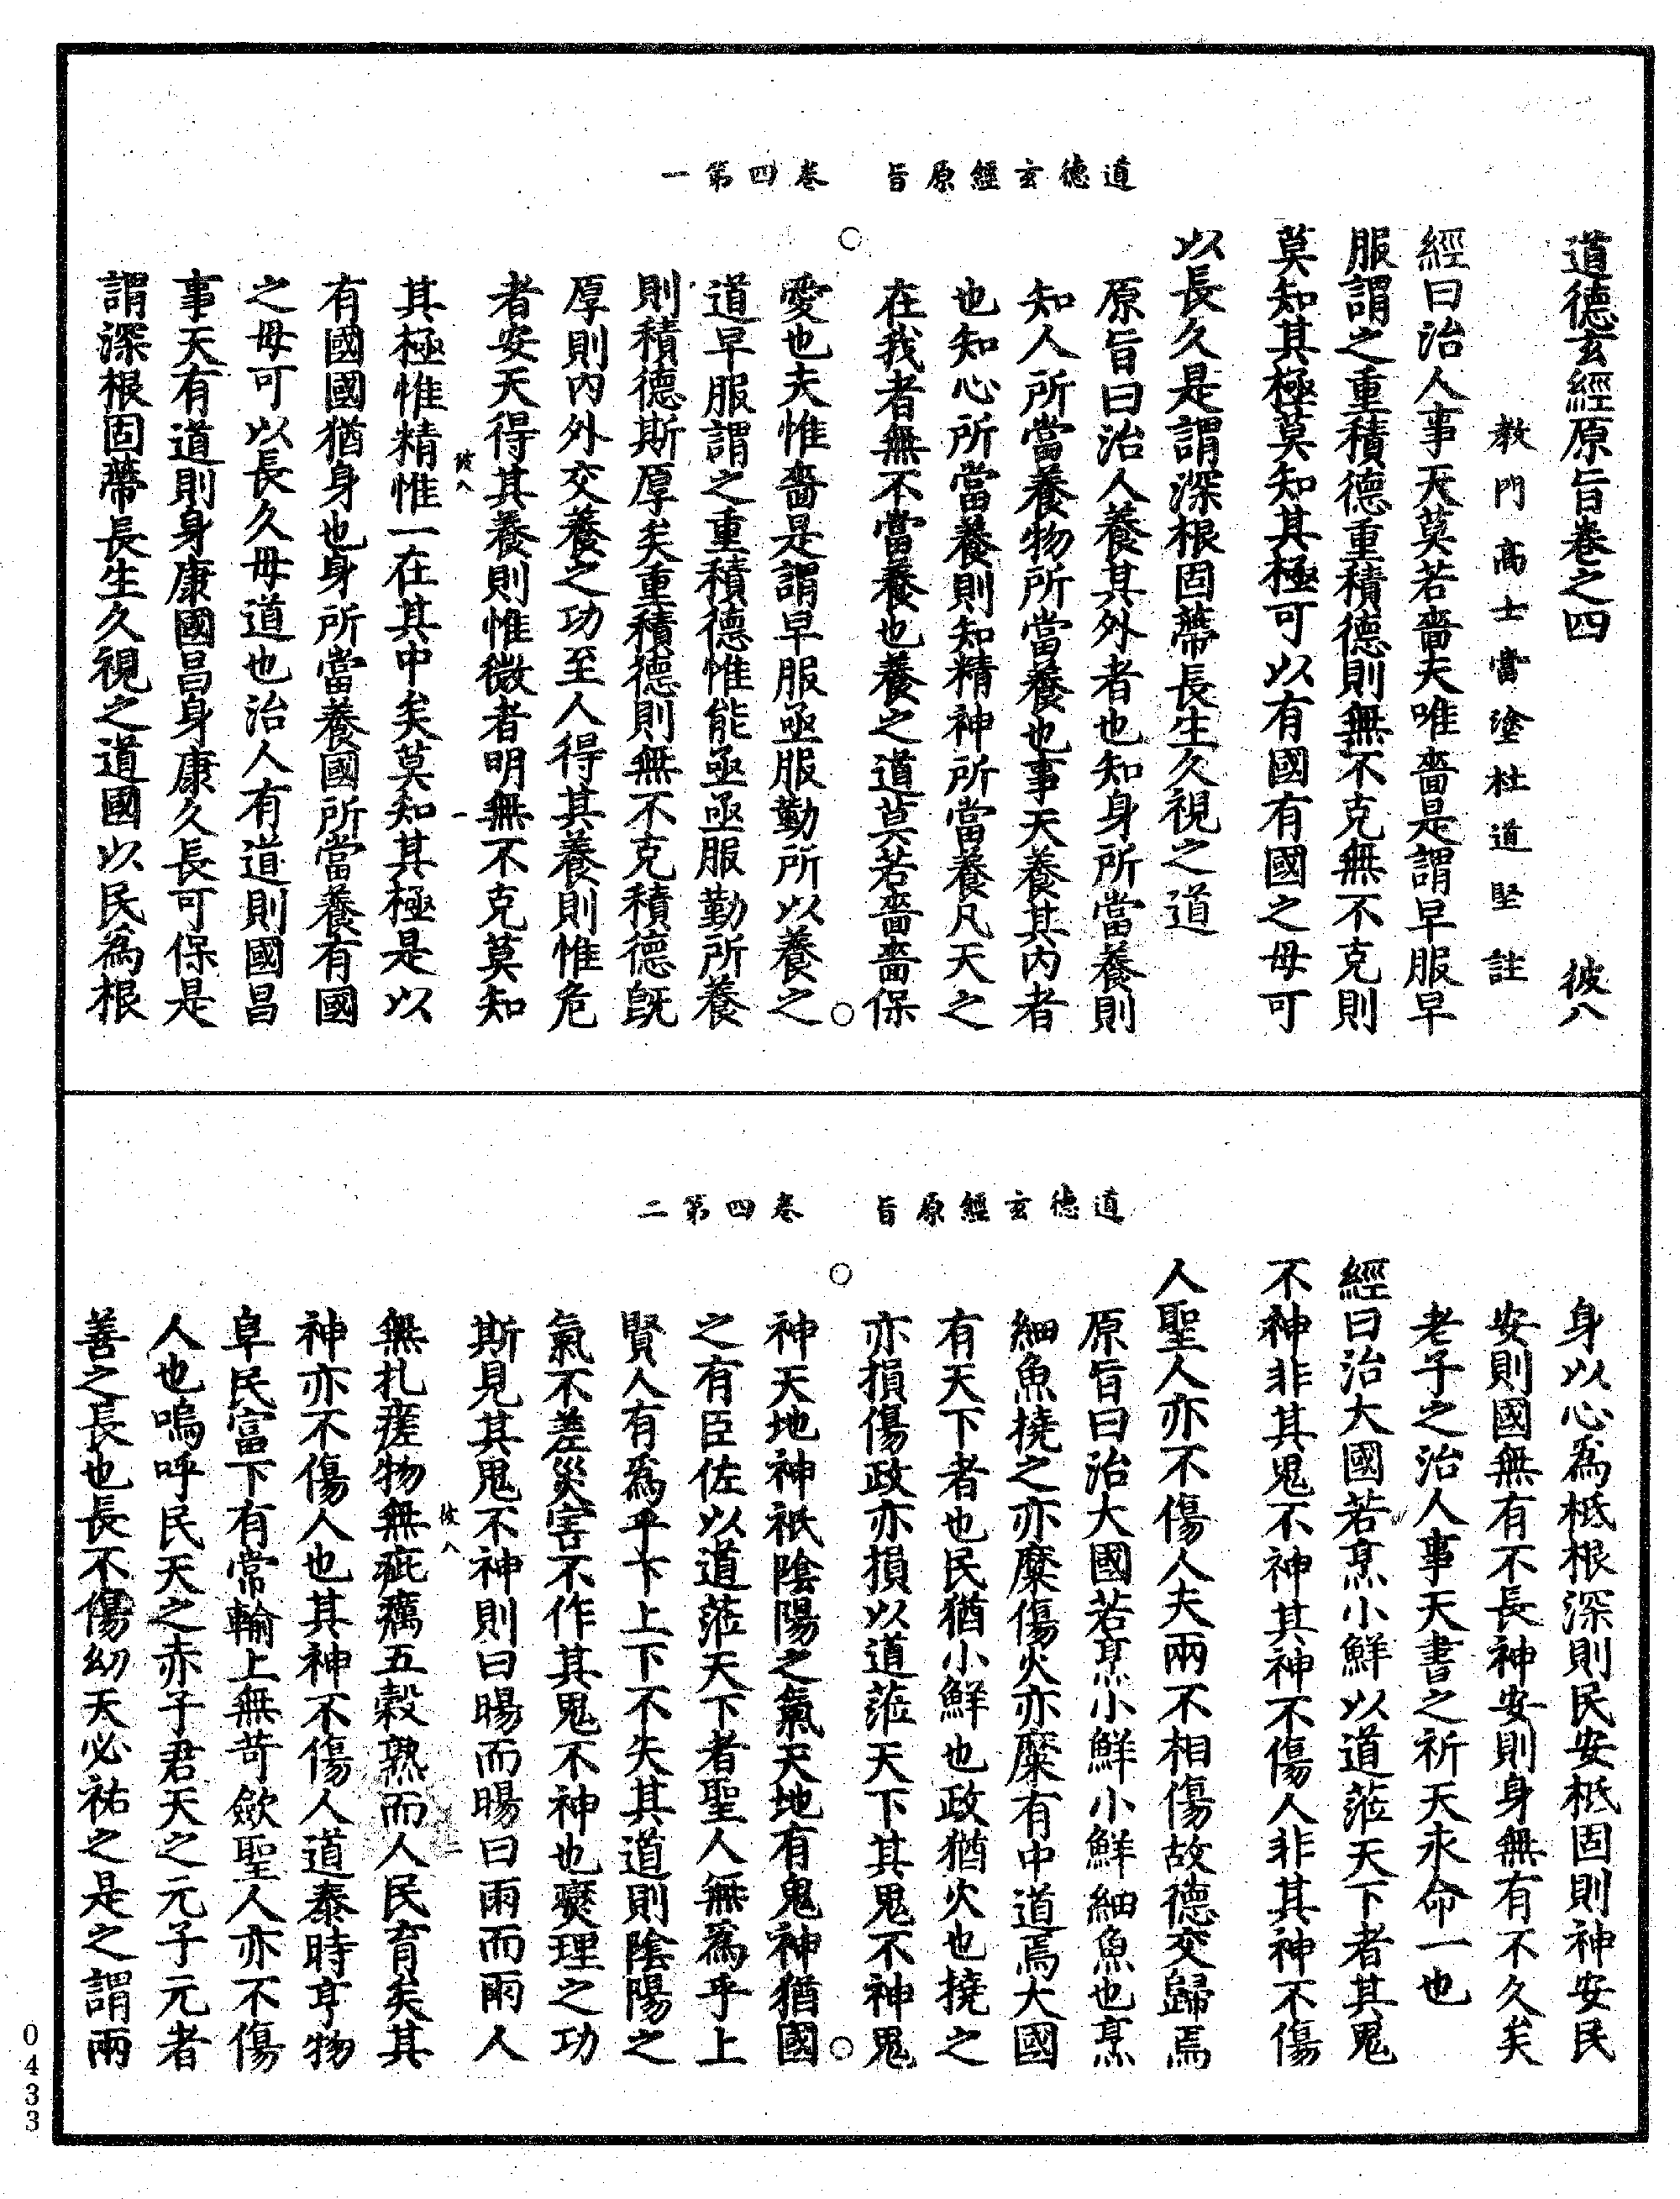 道德玄經原旨　卷四第一
道德玄經原旨卷之四　彼八
教門高士當塗杜道堅註
經曰治人事天莫若嗇夫唯嗇是謂早服早
服謂之重積德重積德則無不克無不克則
莫知其極莫知其極可以有國有國之母可
以長久是謂深根固蔕長生久視之道
原旨曰治人養其外者也知身所當養則
知人所當養物所當養也事天養其內者
也知心所當養則知精神所當養凡天之
在我者無不當養也養之道莫若嗇嗇保
愛也夫惟嗇是謂早服亟服勤所以養之
道早服謂之重積德惟能亟亟服勤所養
則積德斯厚矣重積德則無不克積德旣
厚則內外交養之功至人得其養則惟危
者安天得其養則惟微者明無不克莫知
彼八　一
其極惟精惟一在其中矣莫知其極是以
有國國猶身也身所當養國所當養有國
之母可以長久母道也治人有道則國昌
事天有道則身康國昌身康久長可保是
謂深根固蔕長生久視之道國以民為根
道德玄經原旨　卷四第二
身以心為柢根深則民安柢固則神安民
安則國無有不長神安則身無有不久矣
老子之治人事天書之祈天永命一也
經曰治大國若烹小鮮以道蒞天下者其鬼
不神非其鬼不神其神不傷人非其神不傷
人聖人亦不傷人夫兩不相傷故德交歸焉
原旨曰治大國若烹小鮮小鮮細魚也烹
細魚撓之亦糜傷火亦糜有中道焉大國
有天下者也民猶小鮮也政猶火也撓之
亦損傷政亦損以道蒞天下其鬼不神鬼
神天地神祇陰陽之氣天地有鬼神猶國
之有臣佐以道蒞天下者聖人無為乎上
賢人有為乎下上下不失其道則陰陽之
氣不差災害不作其鬼不神也燮理之功
斯見其鬼不神則曰暘而暘曰雨而雨人
彼八　二
無札瘥物無疵癘五穀熟而人民育矣其
神亦不傷人也其神不傷人道泰時亨物
阜民富下有常輸上無苛歛聖人亦不傷
人也嗚呼民天之赤子君天之元子元者
善之長也長不傷幼天必祐之是之謂兩
0433